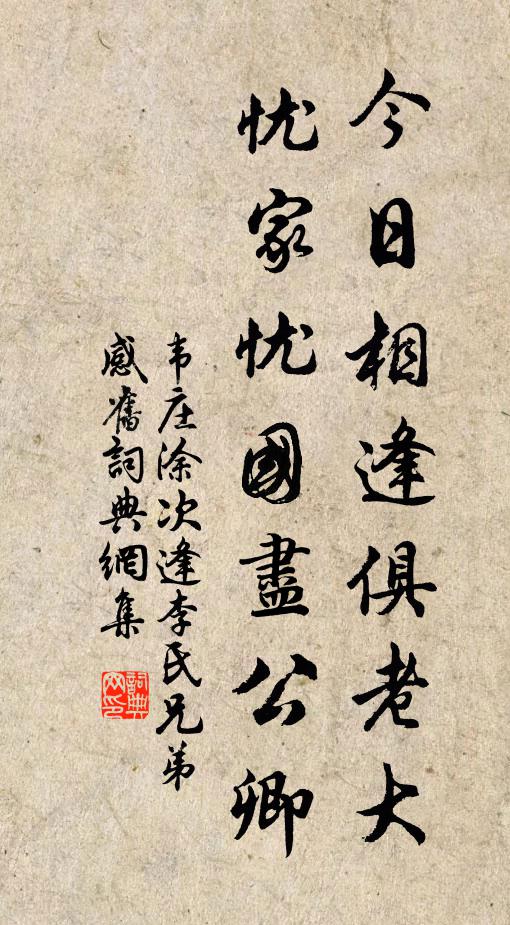 今日相逢俱老大
忧家忧國盡公卿
韦庄涂次逢李氏兄弟
感舊詞典網集
詞典
网印